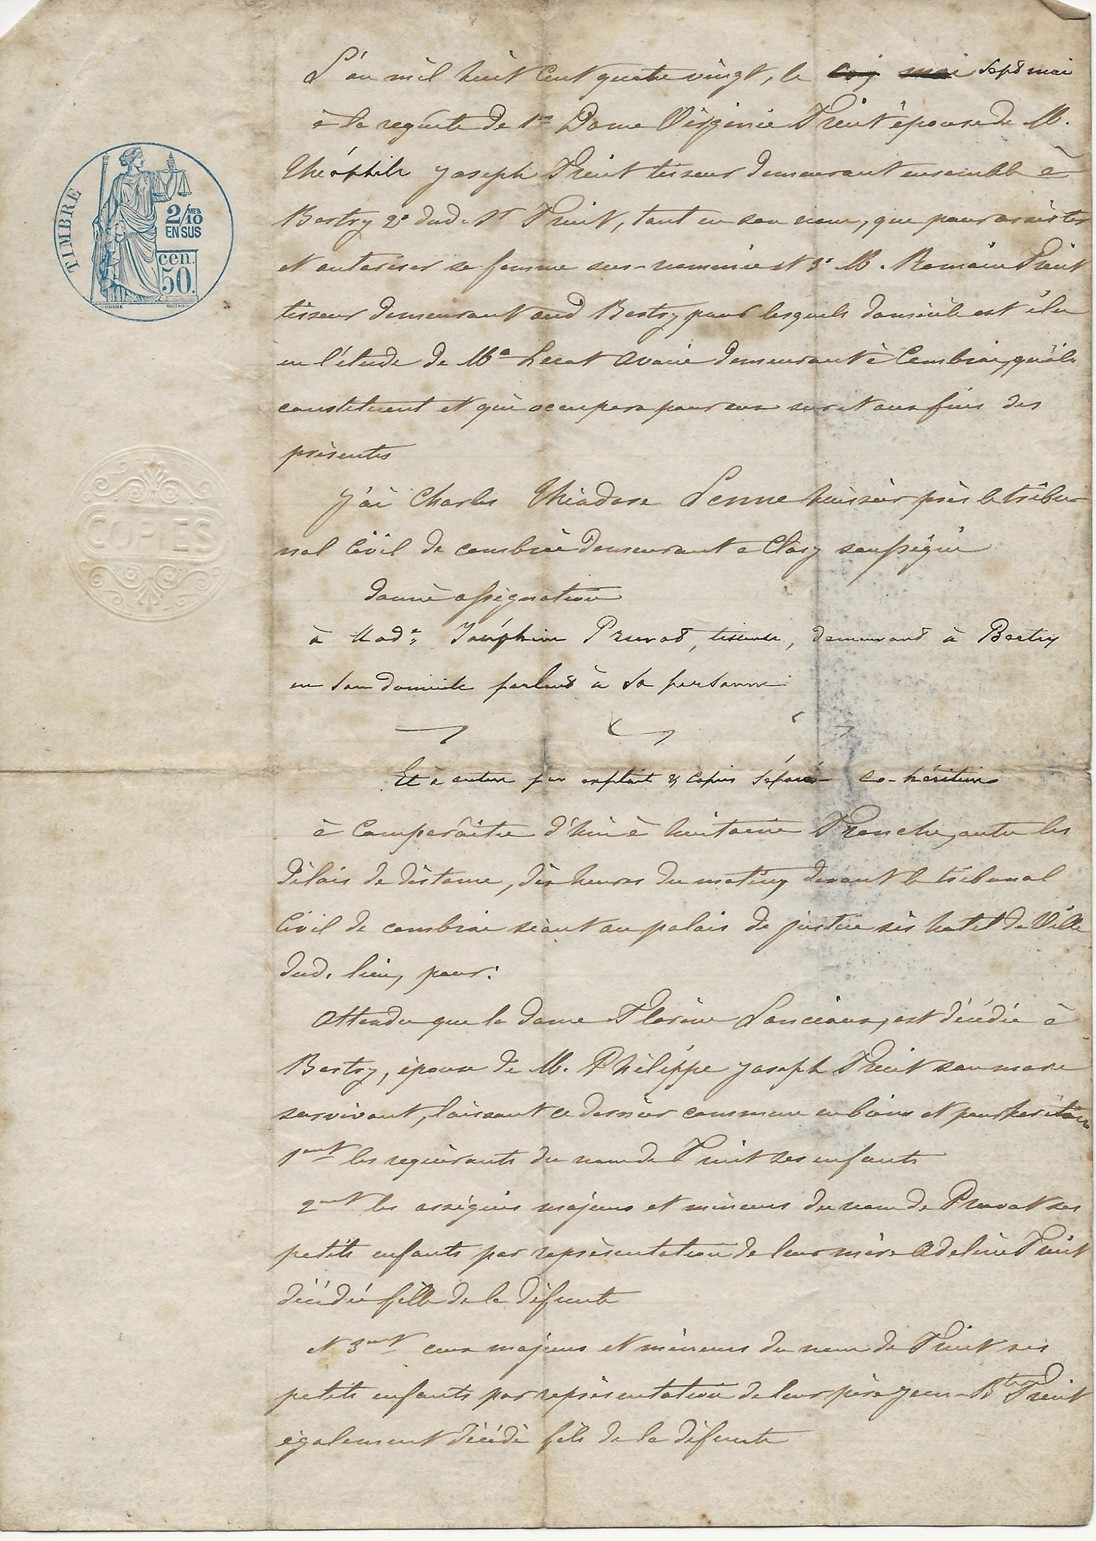 TIMBRE
2/10 MES
EN SUS
cen.
50.
COPIES
L'an mil huit cent quatre vingt, le sept mai
à la requête de 1° Dame Virginie Truit épouse de M.
Théophile Joseph Truit tisseur demeurant ensemble à
Bertry 2° dud. Sr Truit, tant en son nom, que pour assister
et autoriser sa femme sus-nommée et 3° M. Romain Truit
tisseur demeurant aud Bertry pour lesquels domicile est élu
en l'étude de Me Lecat avoué demeurant à Cambrai, qu'ils
constituent et qui occupera pour eux sur et aux fins des
présentes
J'ai Charles Théodore Lenne huissier près le tribu-
nal Civil de cambrai demeurant à Clary soussigné
donné assignation
à Made Joséphine Pruvot, tisseuse, demeurant à Bertry
en son domicile parlant à sa personne
Et à autre par exploit & copies séparés co-héritiers
à Comparaitre d'hui à huitaine Franche, outre les
délais de distance, dix heures du matin, devant le tribunal
Civil de cambrai séant au palais de justice sis hotel de Ville
dud. lieu, pour:
Attendu que la dame Florine Lanciaux, est décédée à
Bertry, épouse de M. Philippe Joseph Truit son mari
survivant, laissant ce dernier commun en biens et pour héritiers
1ent les requérants du nom de Truit ses enfants
2ent les assignés majeurs et mineurs du nom de Pruvot ses
petits enfants par représentation de leur mère Adeline Truit
décédée fille de la défunte
et 3ent ceux majeurs et mineurs du nom de Truit ses
petits enfants par représentation de leur père Jean-Bte Truit
également décédé fils de la défunte